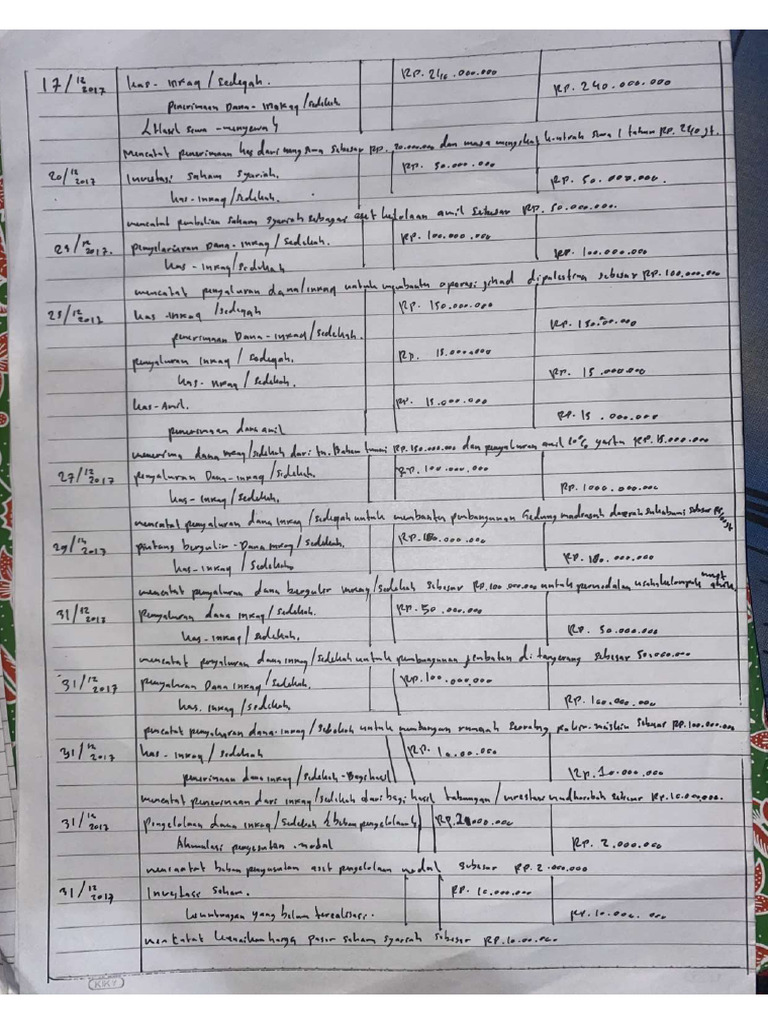 17/12 2017 kas - Infaq / Sedeqah. RP. 240.000.000
penerimaan Dana - Infakaq / Sedekah RP. 240.000.000
(Hasil sewa - menyewa)
mencatat penerimaan kas dari sebesar RP. 20.000.000 dan masa kontrak sewa 1 tahun RP. 240 jt.
20/12 2017 Investasi saham syariah. RP. 50.000.000
kas - Infaq / Sedekah. RP. 50.000.000.
mencatat pembelian saham syariah sebagai aset kelolaan amil sebesar RP. 50.000.000.
23/12 2017. penyaluran Dana - Infaq / Sedekah. RP. 100.000.000
kas - Infaq / Sedekah RP. 100.000.000
mencatat penyaluran dana/infaq untuk membantu operasi jihad dipalestina sebesar RP. 100.000.000
25/12 2017 kas - Infaq / Sedeqah RP. 150.000.000
penerimaan Dana - infaq / Sedekah. RP. 150.000.000
penyaluran Infaq / Sedeqah. RP. 15.000.000
kas - Infaq / Sedekah. RP. 15.000.000
kas - Amil. RP. 15.000.000
penerimaan dana amil RP. 15.000.000
menerima dana infaq/sedekah dari tn. RP. 150.000.000 dan penyaluran amil 10% yaitu RP. 15.000.000
27/12 2017 penyaluran Dana - infaq / Sedekah. RP. 100.000.000
kas - Infaq / Sedekah. RP. 1000.000.000
mencatat penyaluran dana Infaq / Sedeqah untuk membantu pembangunan Gedung madrasah daerah sukabumi sebesar
29/12 2017 piutang bergulir - Dana infaq / Sedekah. RP. 100.000.000
kas - Infaq / Sedekah RP. 100.000.000
mencatat penyaluran dana berguler infaq / Sedekah sebesar RP. 100.000.000 untuk permodalan usaha kelompok
31/12 2017 penyaluran dana infaq / Sedekah. RP. 50.000.000
kas - Infaq / Sedekah. RP. 50.000.000
mencatat penyaluran dana infaq / Sedekah untuk pembangunan jembatan di tangerang sebesar 50.000.000
31/12 2017 penyaluran Dana infaq / Sedekah. RP. 100.000.000
kas. Infaq / Sedekah RP. 100.000.000
pencatat penyaluran dana - infaq / Sedekah untuk membangun rumah seorang fakir-miskin sebesar RP. 100.000.000
31/12 2017 kas - Infaq / Sedekah RP. 10.00.000
penerimaan dana infaq / Sedekah - Bagi hasil RP. 10.000.000
mencatat penerimaan dari infaq / Sedekah dari bagi hasil tabungan / investasi mudharabah sebesar RP. 10.000.000.
31/12 2017 Pengelolaan dana infaq / Sedekah (beban pengelolaan) RP. 2.000.000
Akumulasi penyusutan - modal RP. 2.000.000
mencatat beban penyusutan aset pengelolaan modal sebesar RP. 2.000.000
31/12 2017 Investasi saham. RP. 10.000.000
keuntungan yang belum terealisasi. RP. 10.000.000
mencatat kenaikan harga pasar saham syariah sebesar RP. 10.00.000
KIKY